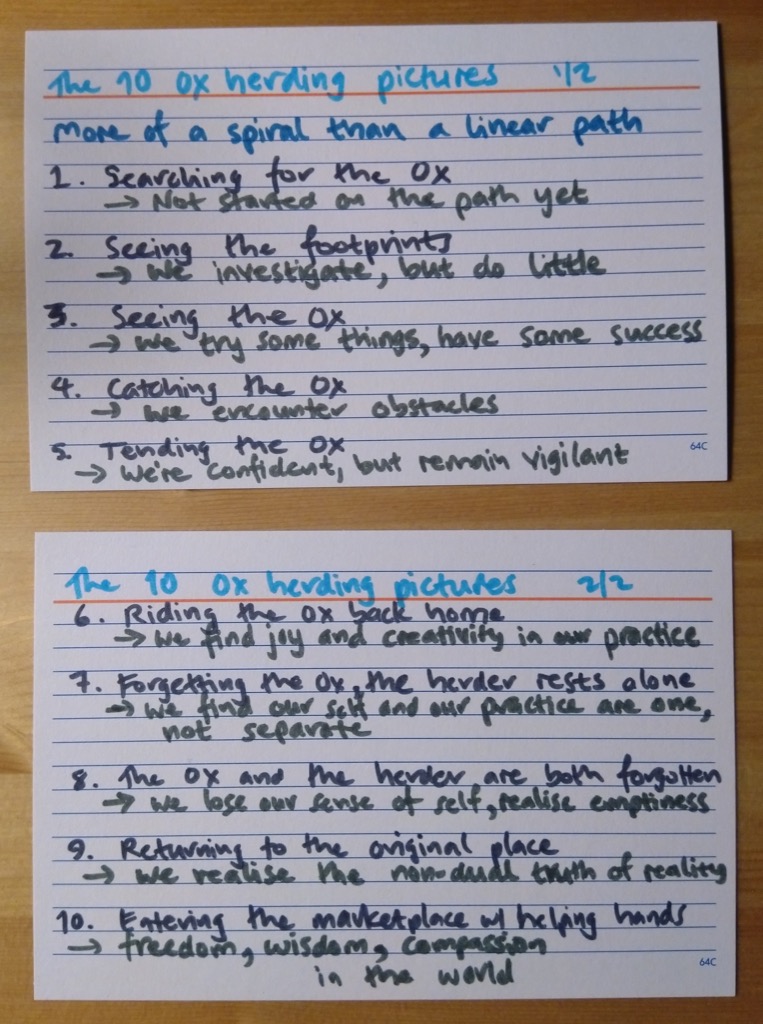 The 10 Ox herding pictures 1/2
More of a spiral than a linear path
1. Searching for the Ox
→ Not started on the path yet
2. Seeing the footprints
→ We investigate, but do little
3. Seeing the Ox
→ We try some things, have some success
4. Catching the Ox
→ We encounter obstacles
5. Tending the Ox
64C
→ We're confident, but remain vigilant
The 10 Ox herding pictures 2/2
6. Riding the Ox back home
→ We find joy and creativity in our practice
7. Forgetting the Ox, the herder rests alone
→ We find our self and our practice are one,
not separate
8. The Ox and the herder are both forgotten
→ We lose our sense of self, realise emptiness
9. Returning to the original place
→ We realise the non-dual truth of reality
10. Entering the marketplace w/ helping hands
→ freedom, wisdom, compassion
64C
in the world